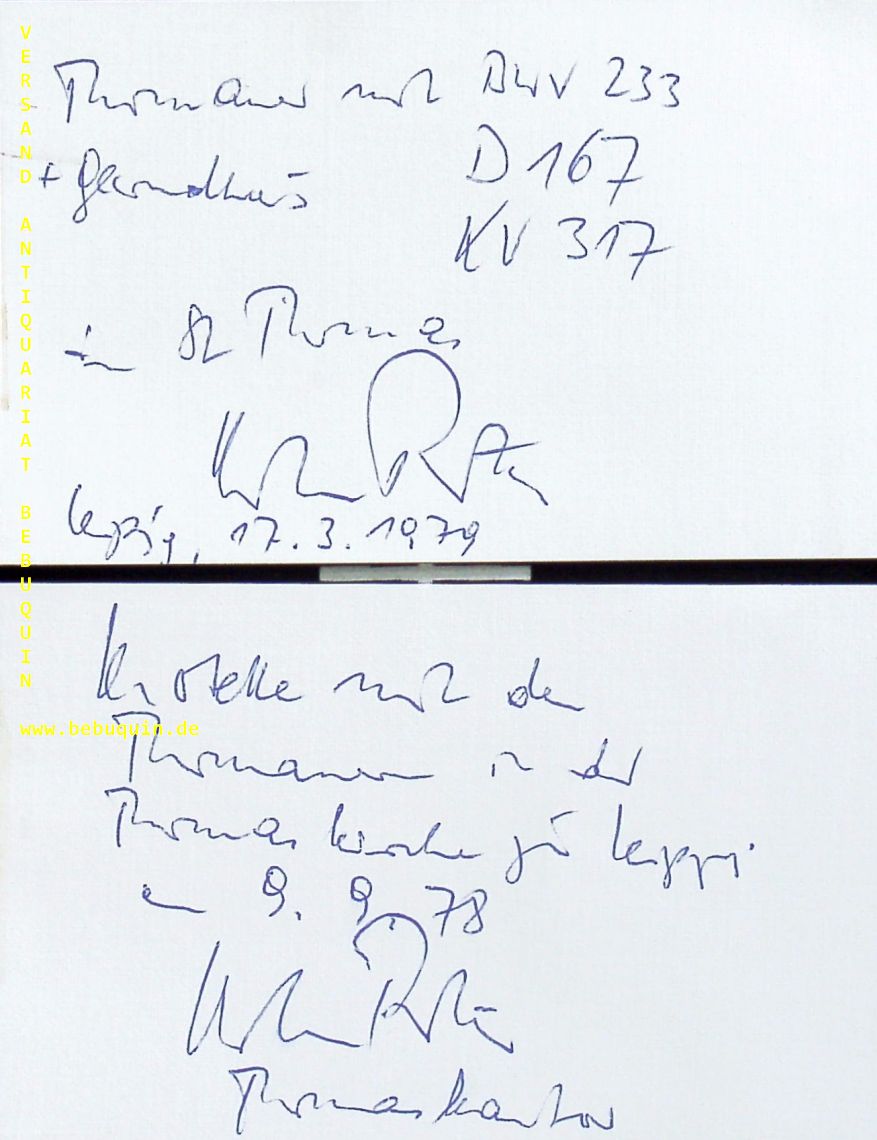 VERSAND ANTIQUARIAT BEBUQUIN
www.bebuquin.de
Thomaner mit BWV 233
+ Gewandhaus D 167
KV 317
in St Thomas
Leipzig, 17.3.1979
Motette mit den
Thomanern in der
Thomaskirche zu Leipzig
am 9. 9. 78
Thomaskantor